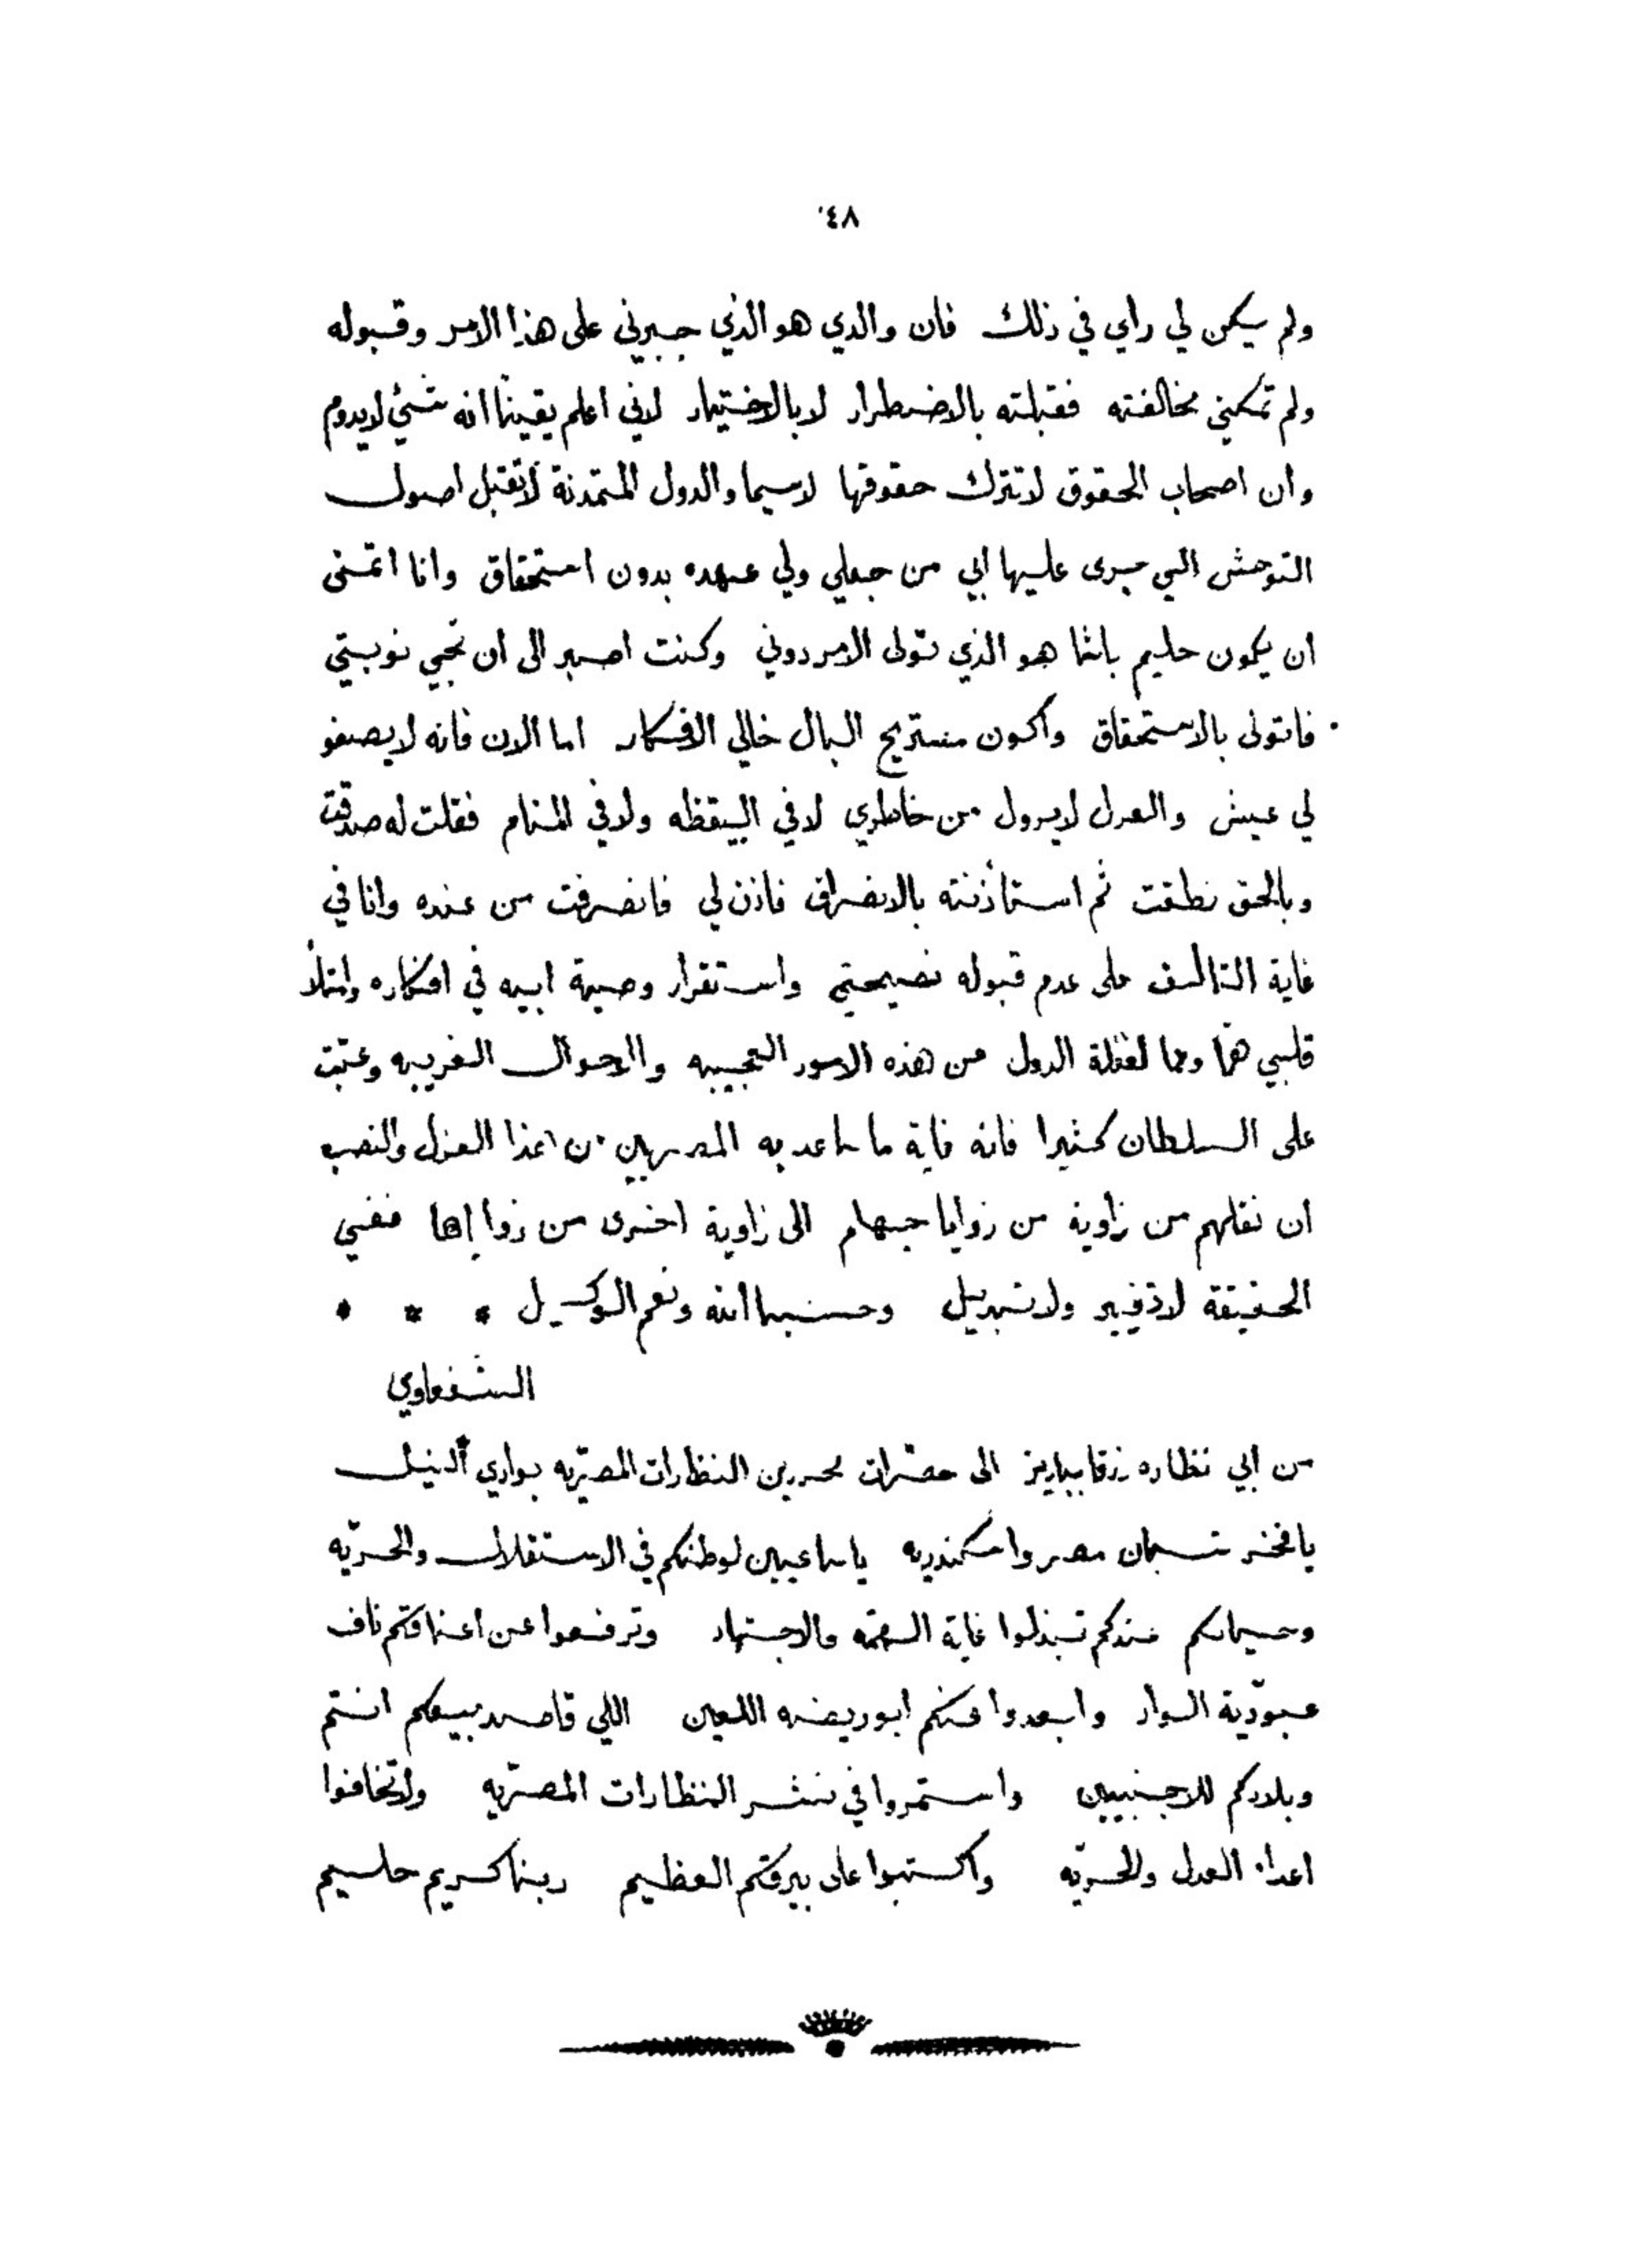 ٨٤
ولم يكن لي راي في ذلك فان والدي هو الذي جبرني على هذا الامر وقبوله
ولم تمكني مخالفته فقبلته بالاضطرار لا بالاختيار لاني اعلم يقينا انه شئ لا يدوم
وان اصحاب الحقوق لا تترك حقوقها لا سيما والدول المتمدنة لا تقبل اصول
التوحش التي جرى عليها ابي من جعلي ولي عهده بدون استحقاق وانا اتمنى
ان يكون حليم باشا هو الذي تولى الامر دوني وكنت اصبر الى ان تجي نوبتي
فاتولى بالاستحقاق واكون مستريح البال خالي الافكار اما الان فانه لا يصفو
لي عيش والعدل لا يزول من خاطري لا في اليقظه ولا في المنام فقلت له صدقت
وبالحق نطقت ثم استأذنته بالانصراف فاذن لي فانصرفت من عنده وانا في
غاية التاسف على عدم قبوله نصيحتي واستقرار وصية ابيه في افكاره وامتلأ
قلبي همّا وغما لغفلة الدول من هذه الامور العجيبه والاحوال الغريبه وعتبت
على السلطان كثيرا فانه غاية ما ساعد به المصريين من هذا العزل والنصب
ان نقلهم من زاوية من زوايا جهنم الى زاوية اخرى من زواياها ففي
الحقيقة لا تغيير ولا تبديل وحسبنا الله ونعم الوكيل * * *
الشفعاوي
من ابي نظاره زرقا بباريز الى حضرات محررين النظارات المصريّه بوادي النيل
يا فخر شبان مصر واسكندريه يا ساعيين لوطنكم في الاستقلال والحريّه
وحياتكم عندكم تبذلوا غاية الهمّه والاجتهاد وترفعوا عن اعناقكم ناف
عبوديّة السواد وابعدوا عنكم ابو ريضه اللعين اللي قاصد يبيعكم انتم
وبلادكم للاجنبيين واستمروا في نشر النظارات المصريّه ولا تخافوا
اعداء العدل والحريّه واكتبوا على بيرقكم العظيم ربنا كريم حليم